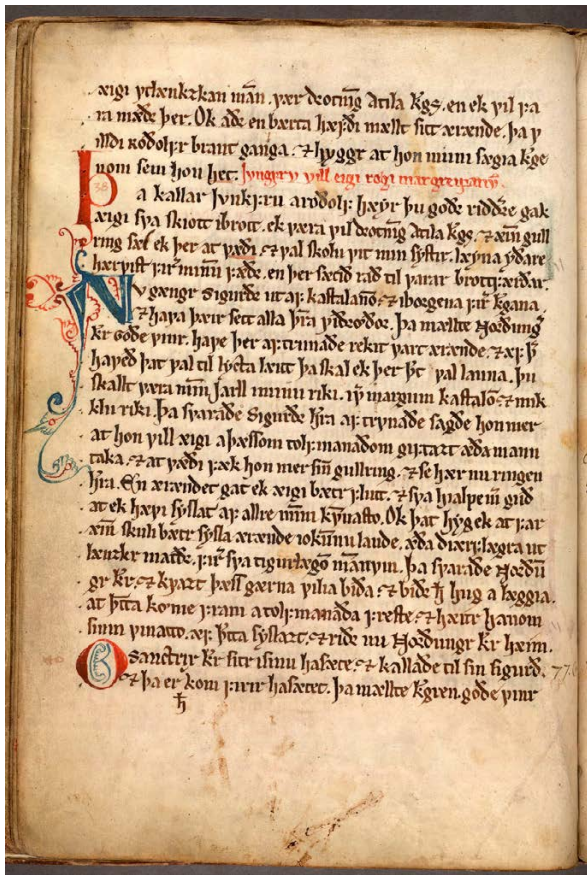 æigi ytlænkzkan mán. vær drotnīg Atila kgs. en ek vil fa
ra mæðr þer. Ok aðr en bærta hærði mællt sitt ærænde. þa v
illdi roðolfr braut ganga. ⁊ hyggr at hon mun sægia kge
nom sem hon het. Jungfru vill eigi
38
Þa kallar Jvnkfru a roðolf. hæyr þu goðe riddære gak
æigi sva skiott ibrott. ek væra vil drotnīg Atila kgs. ⁊ æin gull
ring sæl ek þer at væði. ⁊ val skolu vit min systir. læyna yðare
hærvist firir minū fæðr. en þer sætið rað til varar brottfærðar.
Nv gængr Sigurðr ut af kastalanō. ⁊ iborgena firir kgana
⁊ hava þæir sett alla þra viðrorðor. þa mællte Norðungr
kr goðe vinr. have þer af trunaðe rekit vart ærænde. ⁊ ef þr
haveð þat val til lycta læitt þa skal ek þer þt val launa. þu
skallt væra minn Jarll minu riki. ivir margum kastalō ⁊ mik
klu riki. þa svaraðe Sigurðr hra af trunaðe sagðe hon mer
at hon vill æigi a þæssom tolf manaðom giftazt æða mann
taka. ⁊ at væði fæk hon mer sin gullring. ⁊ se hær nu ringen
hra. En ærændet gat ek æigi bætr flutt. ⁊ sva hialpe m guð
at ek hæfi syslat af allre minni kvnatto. Ok þat hyg ek at far
æinn skuli bætr sysla ærænde iokunnu lande. æða diærflægra ut
lænzkr maðr. firir sva tigurlægō mannvm. þa svaraðe Norðun
gr kr. ⁊ kvazt þæss gærna vilia biða ⁊ biðr h hug a læggia.
at þtta kome fram a tolf manaða freste. ⁊ hæitr hanom
sinni vinatto. æf þtta syslazt. ⁊ riðr nu Norðungr kr hæim.
40
Osanctrix kr sitr isinu hasæte. ⁊ kallaðe til sin sigurð. 77
⁊ þa er kom firir hasætet. þa mællte kgren. goðe vinr
h